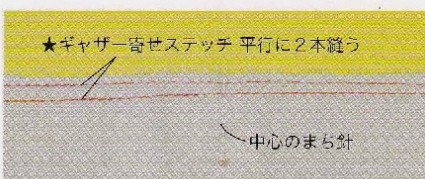 ★ギャザー寄せステッチ 平行に2本縫う
中心のまち針